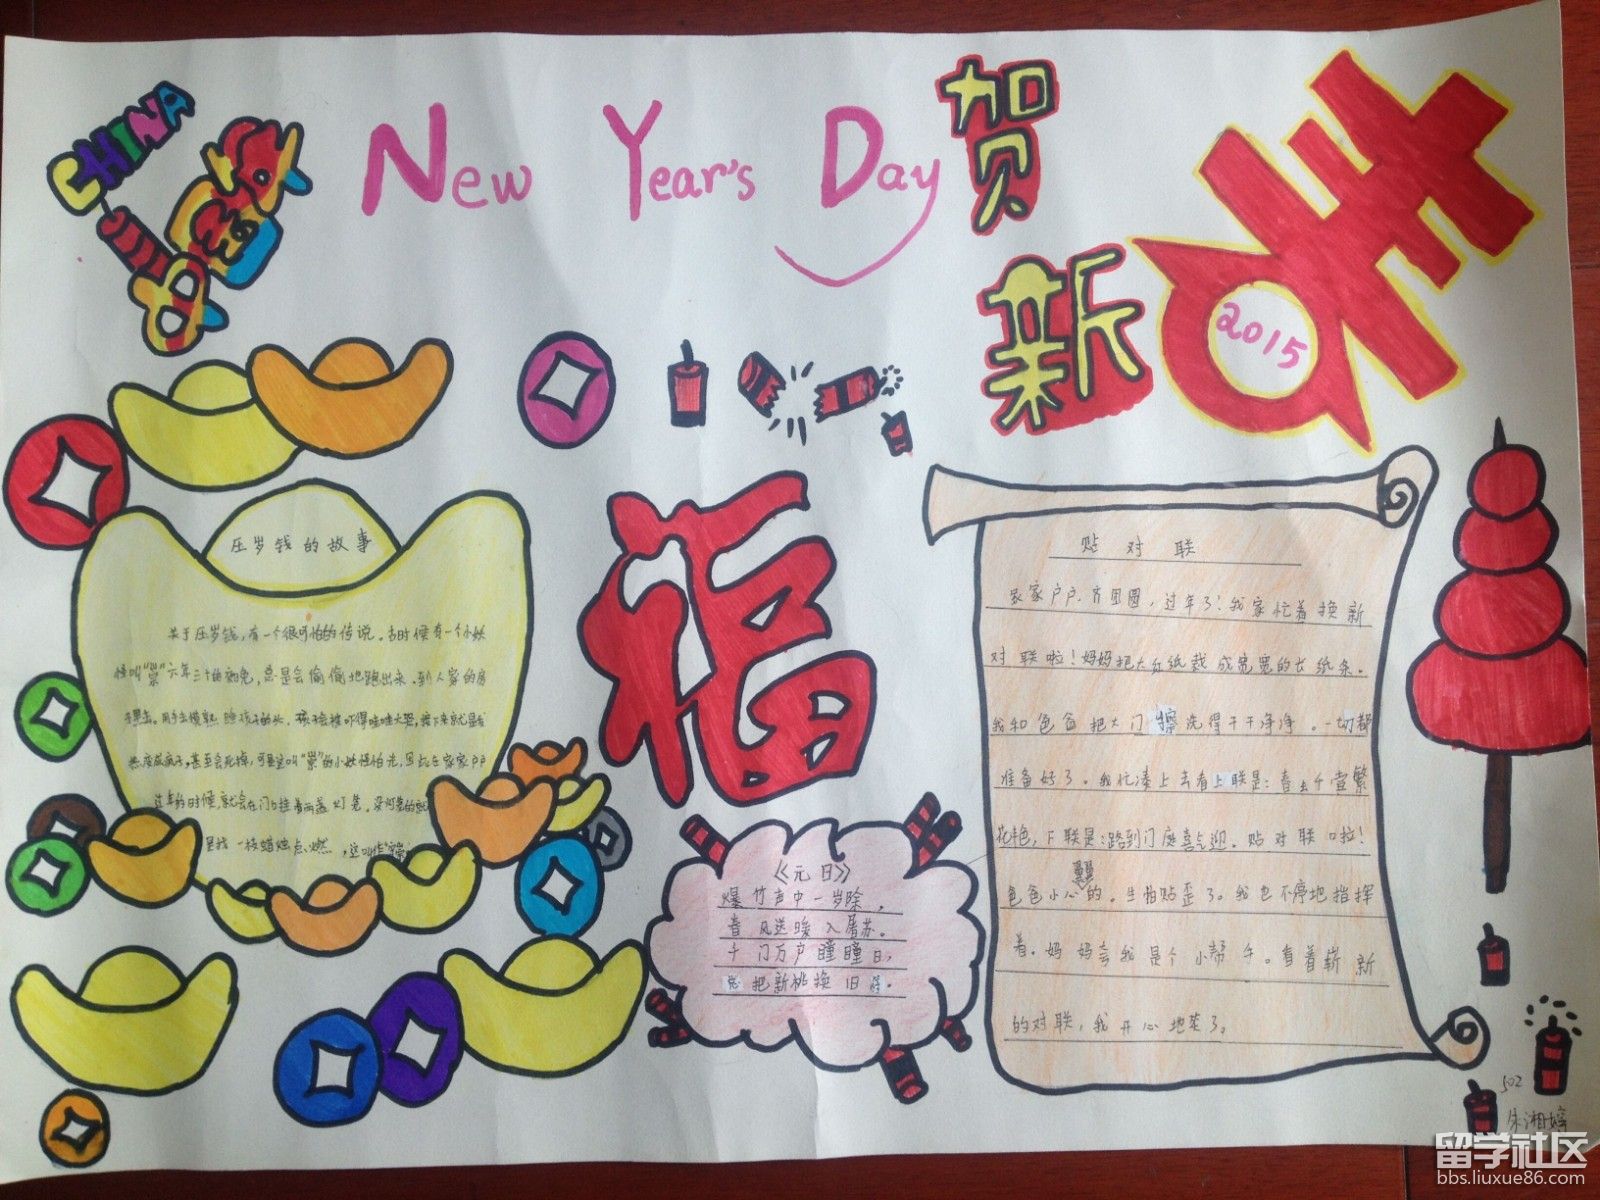 CHINA
New Year's Day
贺
新
春
2015
福
压岁钱的故事
关于压岁钱,有一个很可怕的传说。古时候有一个小妖
怪叫“祟”大年三十的夜晚,总是会偷偷地跑出来,到人家的房
过年的时候,就会在门口挂着两盏灯笼,没灯笼的就
是找一枝蜡烛点燃,这叫作
《元日》
爆竹声中一岁除,
春风送暖入屠苏。
千门万户瞳瞳日,
总把新桃换旧符。
贴对联
家家户户齐团圆,过年了!我家忙着换新
对联啦!妈妈把大红纸裁成宽宽的长纸条。
我和爸爸把大门擦洗得干干净净。一切都
准备好了。我忙凑上去看上联是:春去千堂繁
花艳,下联是:路到门庭喜气迎。贴对联啦!
爸爸小心翼翼的,生怕贴歪了。我也不停地指挥
着。妈妈夸我是个小帮手。看着崭新
的对联,我开心地笑了。
502
朱湘婷
留学社区
bbs.liuxue86.com